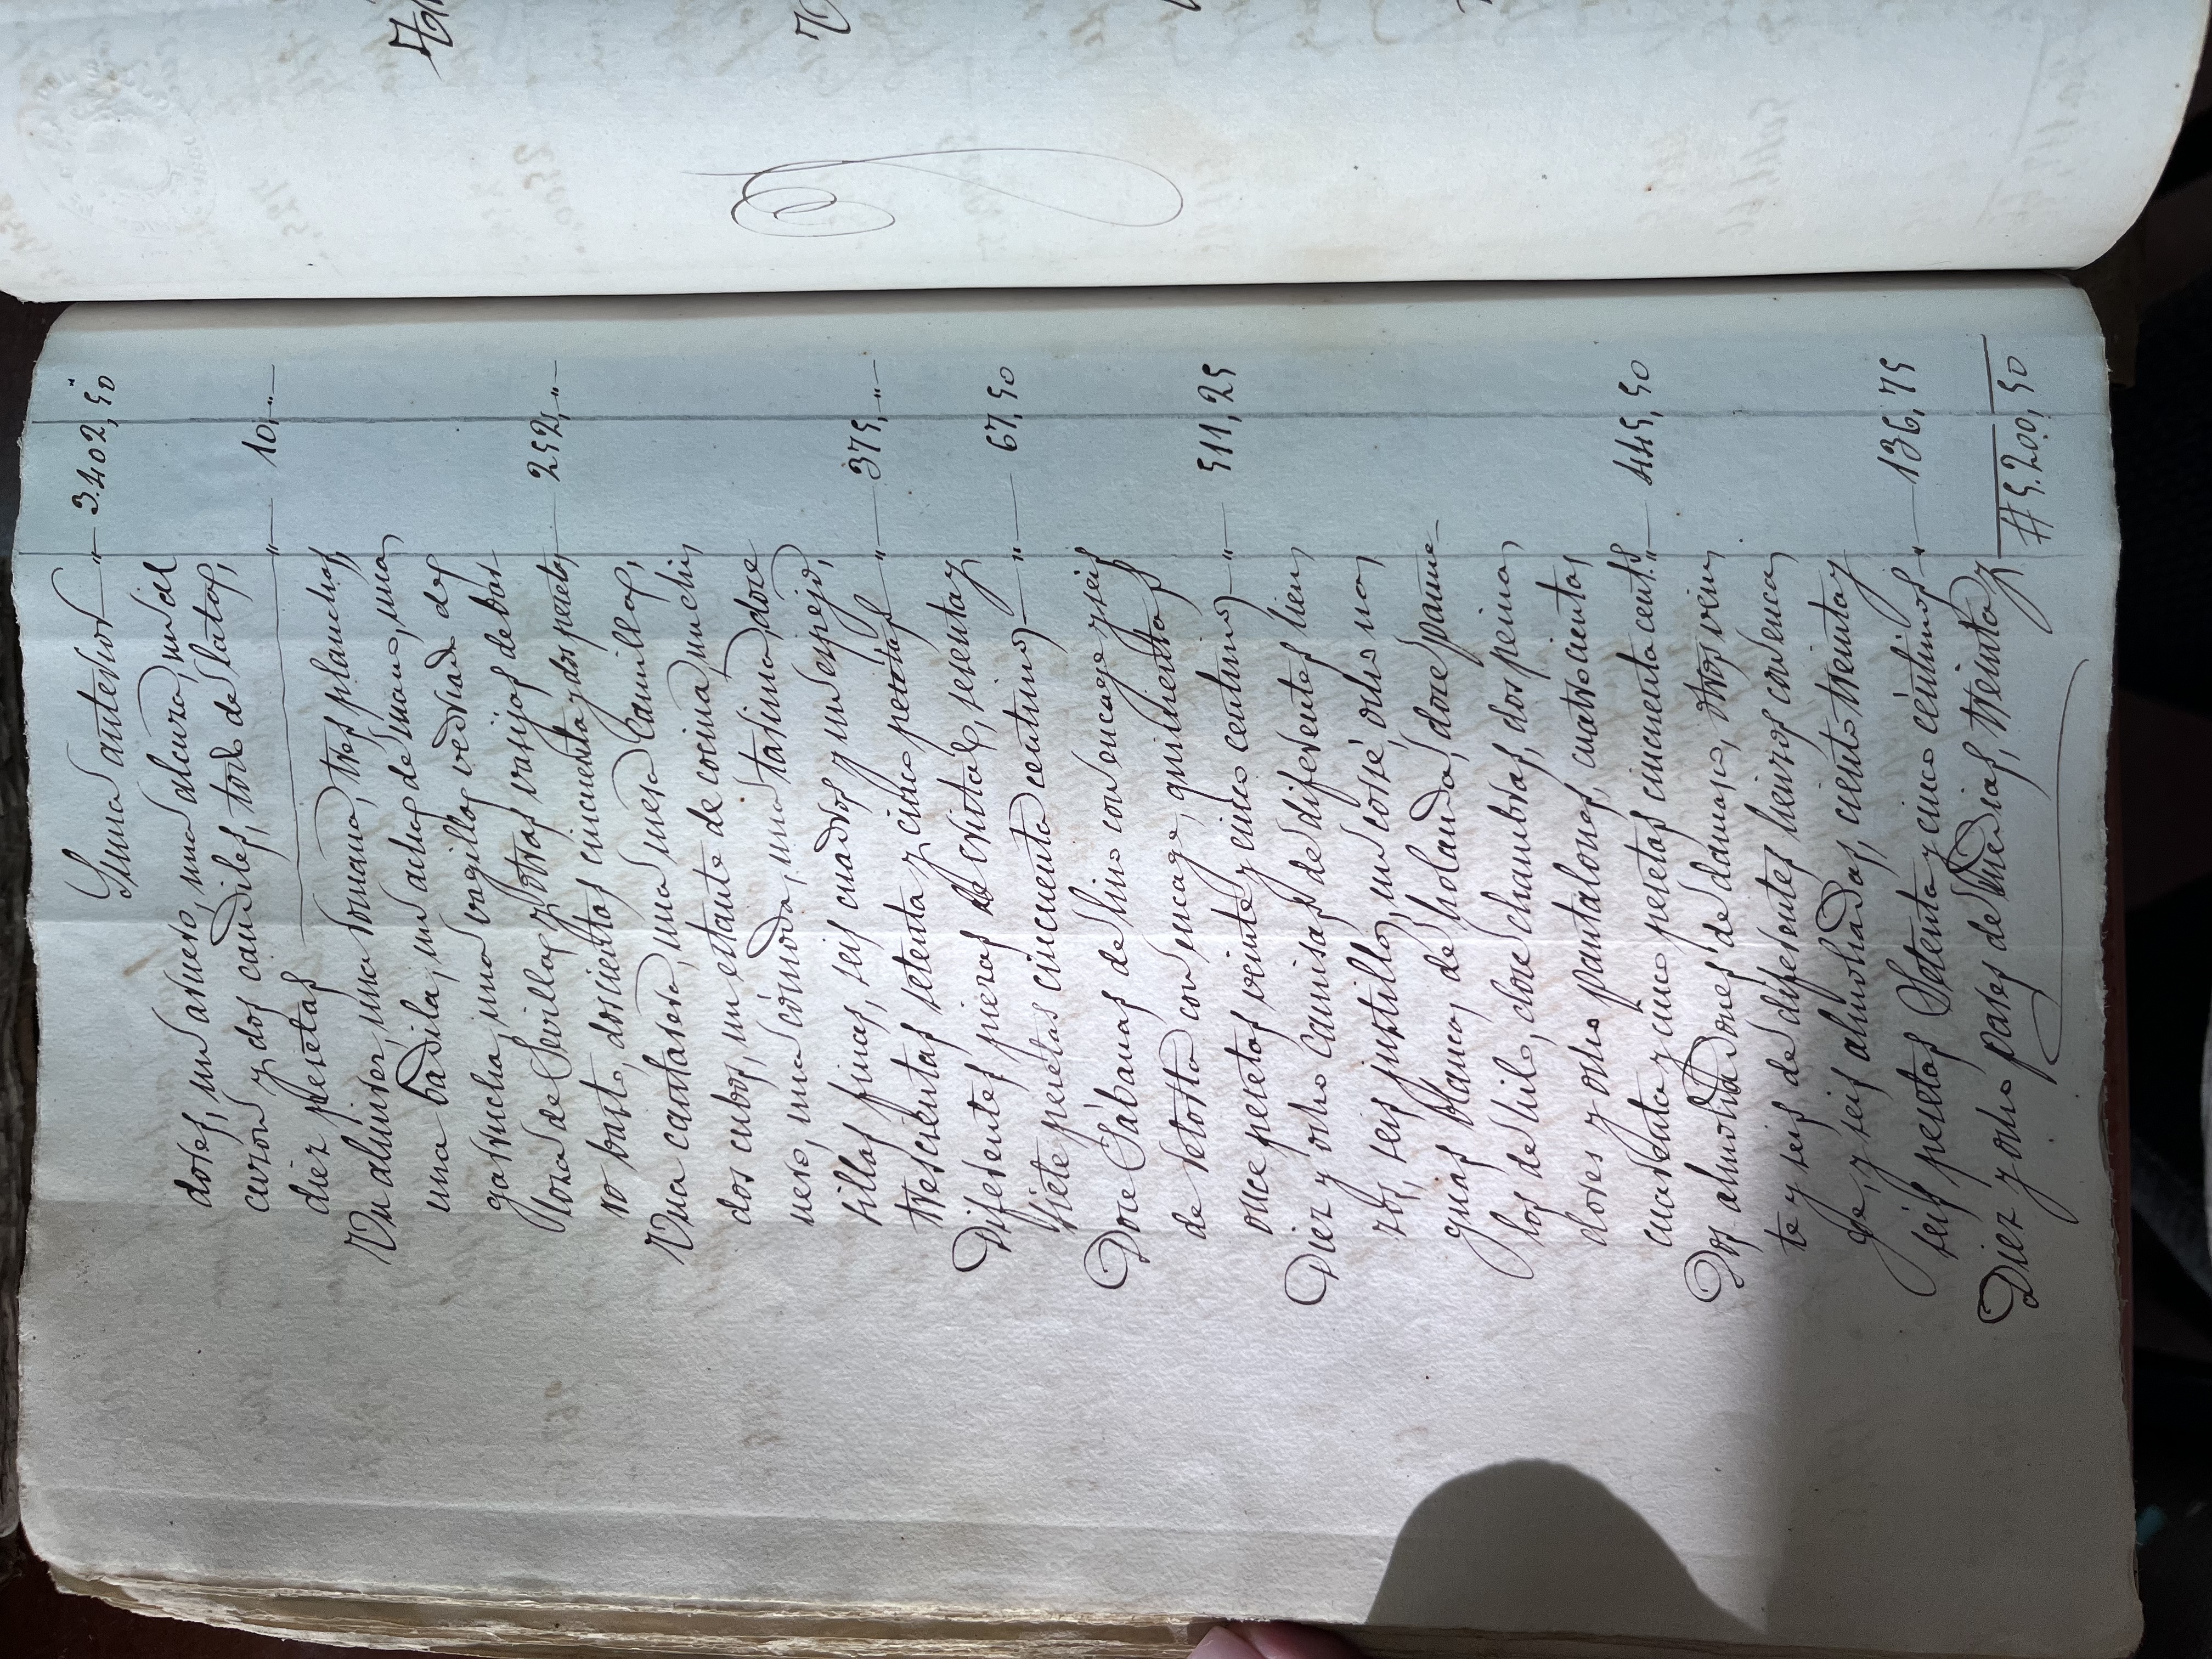 Suma anterior " 3.402,50"
dores, un arnero, una alcuza, un cil
curon y dos candiles, todo de lata,
diez pesetas " 10, "
Un almirez, una romana, tres planchas,
una badila, un achos de mano, una
garrucha, unos vogillos vedriado de
loza de Sevilla y otras vasijas de bar
ro basto, doscientas cincuenta y dos pesetas 252, "
Una cantarera, una mesa camilla,
dos cubos, un estante de cocina, un chi
nero, una cómoda, una tarima, doce
sillas finas, seis cuadros y un espejo,
trescientas setenta y cinco pesetas " 375, "
Diferentes piezas de cristal, sesenta y
siete pesetas cincuenta centimos " 67,50
Doce Sábanas de lino con encage y seis
de retorta con encage, quinientas
once pesetas veinte y cinco centimos " 511,25
Diez y ocho camisas de diferentes lien
zos, seis justillos, un corsé, ocho na
guas blancas de holanda, doce pañue-
los de hilo, doce chambras, dos peina
dores y ocho pantalones, cuatrocientas
cuarenta y cinco pesetas cincuenta cents. " 445,50
Dos almohadones de damasco, otros vein
te y seis de diferentes lienzos con enca
ge, y seis almohadas, ciento treinta y
seis pesetas setenta y cinco céntimos " 136,75
Diez y ocho pares de medias, treinta y
# 5.200,50